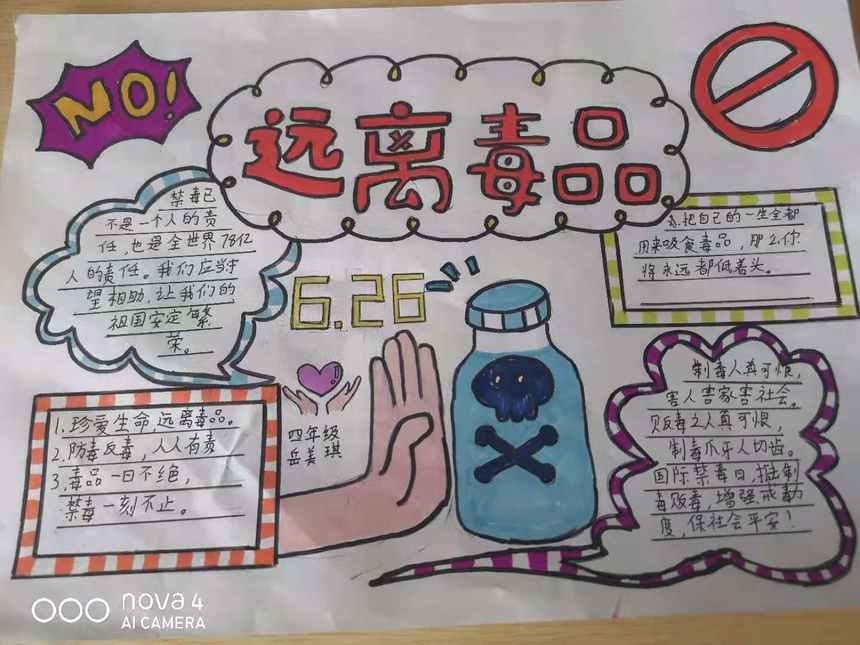 NO!
远离毒品
禁毒已
不是一个人的责
任,也是全世界78亿
人的责任。我们应当守
望相助,让我们的
祖国安定繁
荣。
6.26
把自己的一生全都
用来吸食毒品,那么你
将永远都低着头。
1.珍爱生命远离毒品。
2.防毒反毒,人人有责
3.毒品一日不绝,
禁毒一刻不止。
四年级
岳美琪
制毒人真可恨,
害人害家害社会。
贩毒之人真可恨,
制毒爪牙人切齿。
国际禁毒日,抵制
毒贩毒,增强戒毒
度,保社会平安!
nova 4
AI CAMERA